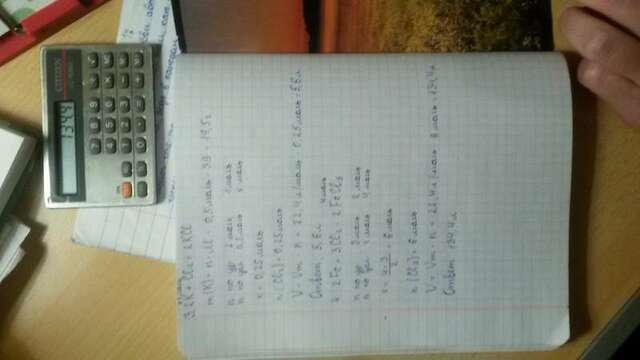 CITIZEN
1344
7 8 9
4 5 6
1 2 3
0,5моль
3. 2K + Cl₂ = 2KCl
m(K) = n · M = 0,5 моль · 39 = 19,5 г
n по ур 2 моль 1 моль
n по усл 0,5 моль x моль
x = 0,25 моль
n(Cl₂) = 0,25 моль
V = Vm · n = 22,4 л/моль · 0,25 моль = 5,6 л
Ответ: 5,6 л
4 моль
4. 2Fe + 3Cl₂ = 2FeCl₃
n по ур 3 моль 2 моль
n по усл x моль 4 моль
x = 4·3/2 = 6 моль
n(Cl₂) = 6 моль
V = Vm · n = 22,4 л/моль · 6 моль = 134,4 л
Ответ: 134,4 л